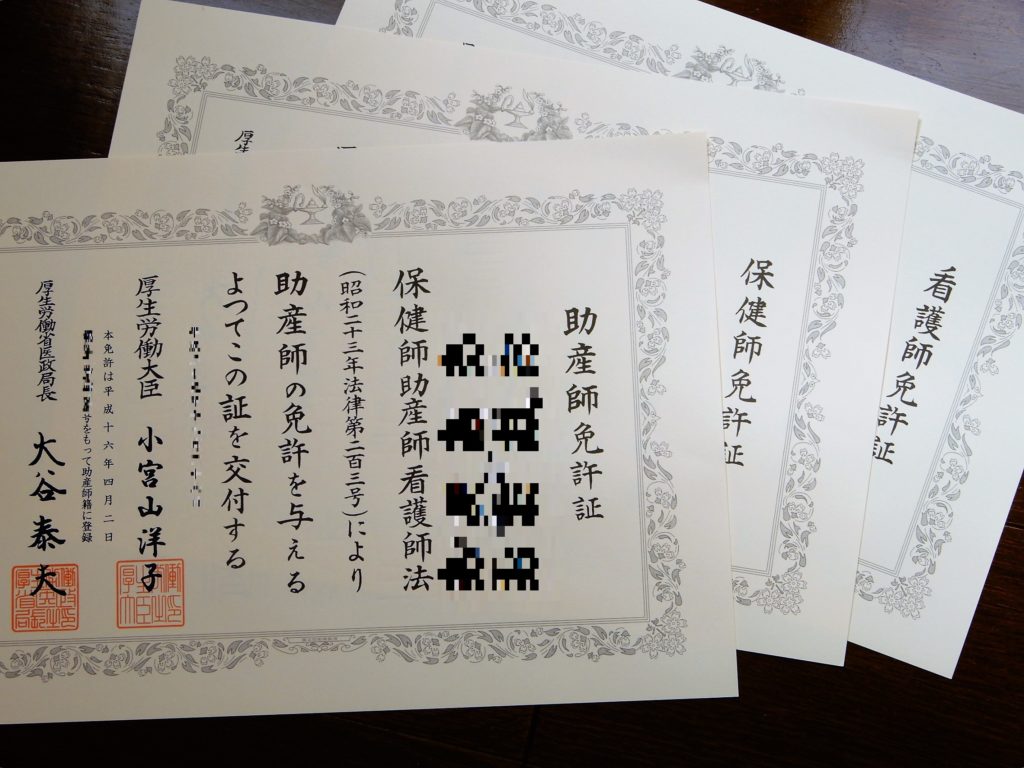 助産師免許証
保健師助産師看護師法
(昭和二十三年法律第二百三号)により
助産師の免許を与える
よつてこの証を交付する
厚生労働大臣 小宮山洋子
本免許は平成十六年四月二日
号をもって助産師籍に登録
厚生労働省医政局長 大谷泰夫
保健師免許証
厚生
看護師免許証